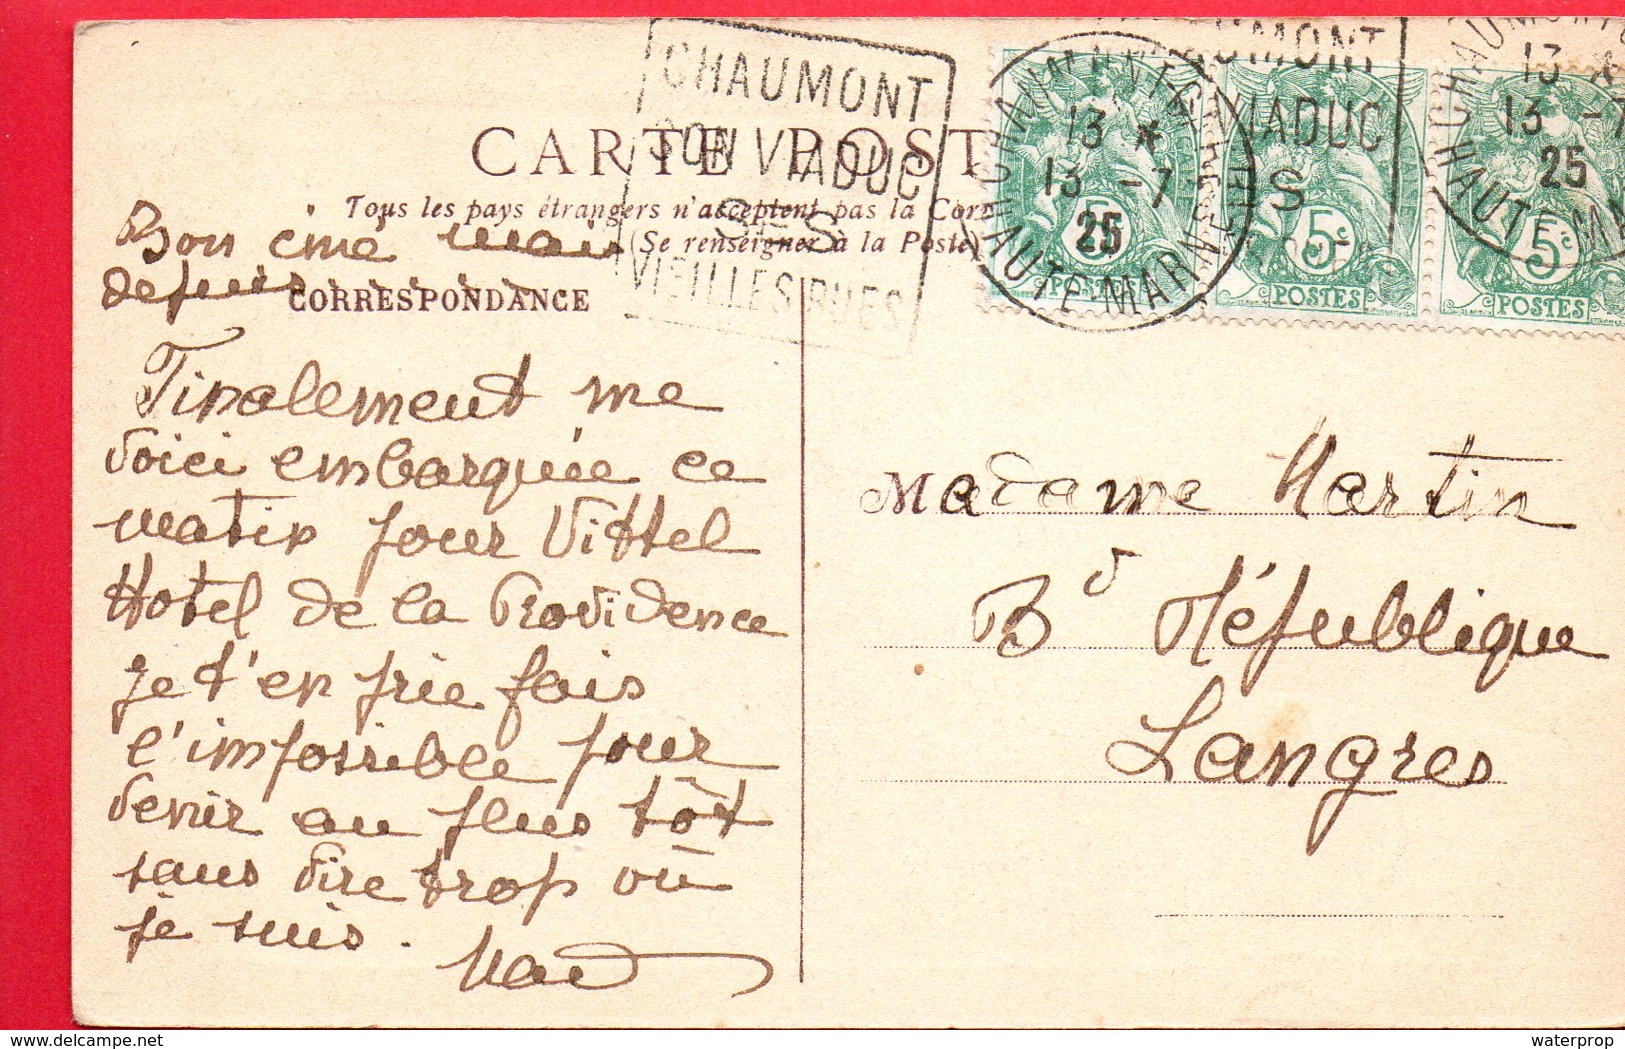 CARTE POST
Tous les pays étrangers n'acceptent pas la Corr
(Se renseigner à la Poste)
CORRESPONDANCE
CHAUMONT
SON VIADUC
SES
VIEILLES RUES
CHAUMONT
13 *
13 -7
25
HAUTE-MARNE
UMONT
IADUC
S
CHAUMONT
13 *
13 -7
25
HAUTE-MA
5c
POSTES
5c
POSTES
5c
POSTES
Bon ciné mais
depuis
Finalement me
voici embarquée ce
matin pour Vittel
Hotel de la Providence
je t'en prie fais
l'impossible pour
venir au plus tôt
sans dire trop où
je suis.
Madame Martin
Bd République
Langres
waterprop